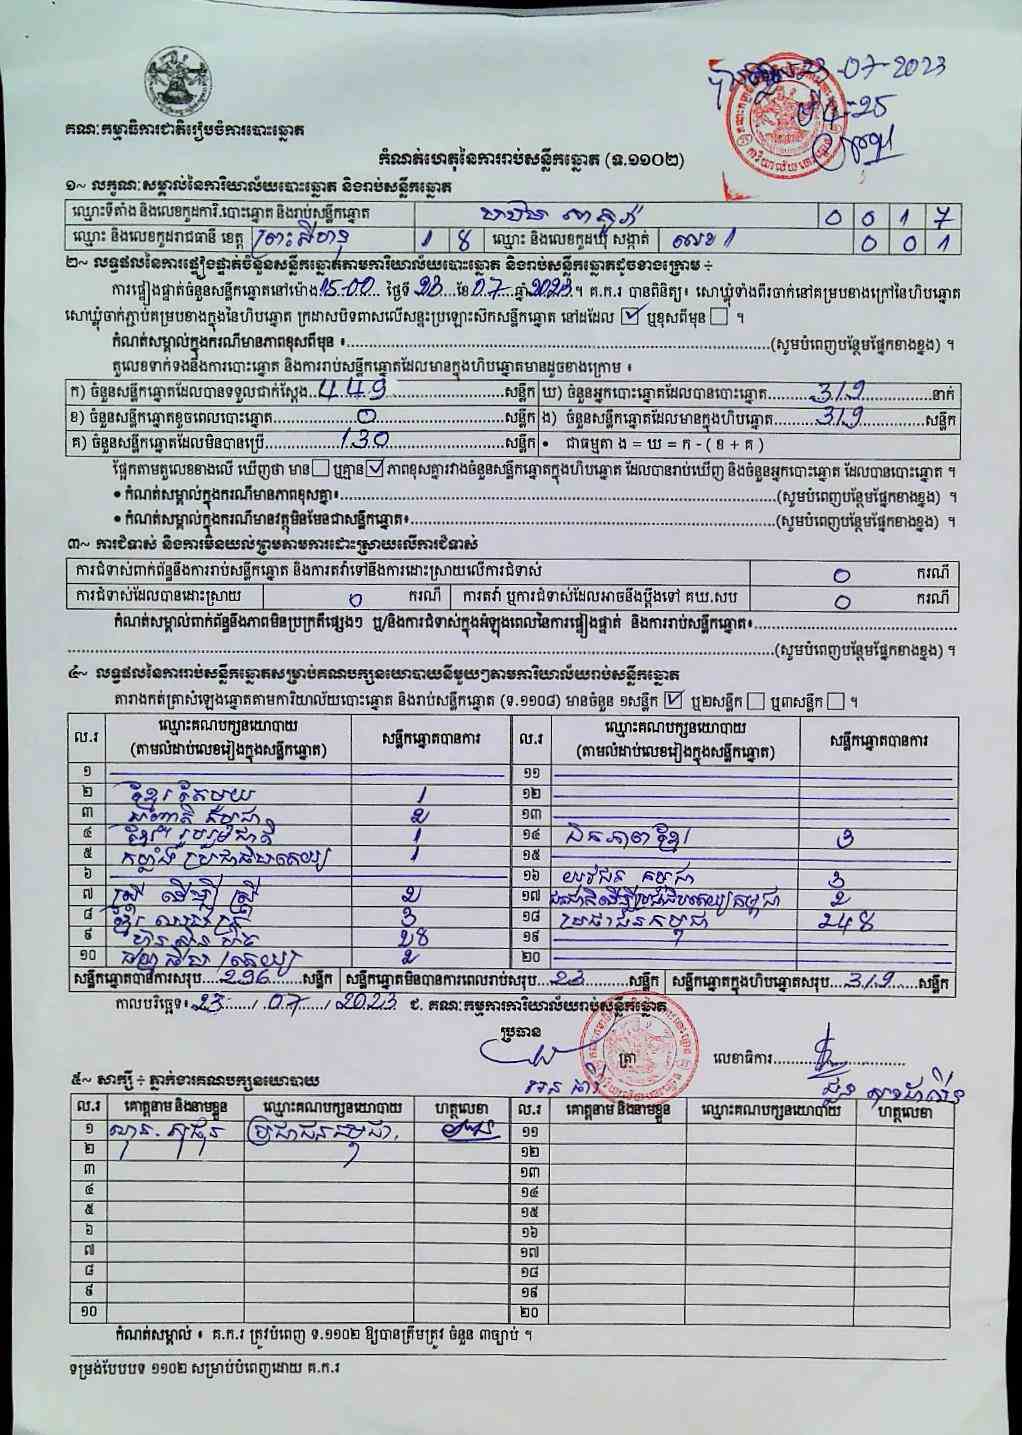 23-07-2023
គណៈកម្មាធិការជាតិរៀបចំការបោះឆ្នោត
កំណត់ហេតុនៃការរាប់សន្លឹកឆ្នោត (ទ.១១០២)
១~ លក្ខណៈសម្គាល់នៃការិយាល័យបោះឆ្នោត និងរាប់សន្លឹកឆ្នោត
ឈ្មោះទីតាំង និងលេខកូដការិ.បោះឆ្នោត និងរាប់សន្លឹកឆ្នោត 0 0 1 7
ឈ្មោះ និងលេខកូដរាជធានី ខេត្ត ព្រះសីហនុ 1 8 ឈ្មោះ និងលេខកូដឃុំ សង្កាត់ លេខ 1 0 0 1
២~ លទ្ធផលនៃការផ្ទៀងផ្ទាត់ចំនួនសន្លឹកឆ្នោតតាមការិយាល័យបោះឆ្នោត និងរាប់សន្លឹកឆ្នោតដូចខាងក្រោម ÷
ការផ្ទៀងផ្ទាត់ចំនួនសន្លឹកឆ្នោតនៅម៉ោង 15:00 ថ្ងៃទី 23 ខែ 07 ឆ្នាំ 2023 ។ គ.ក.រ បានពិនិត្យ៖ សោឃ្លុំទាំងពីរចាក់នៅគម្របខាងក្រៅនៃហិបឆ្នោត
សោឃ្លុំចាក់ភ្ជាប់គម្របខាងក្នុងនៃហិបឆ្នោត ក្រដាសបិទពាសលើសន្ទះប្រឡោះស៊កសន្លឹកឆ្នោត នៅដដែល ☑ ឬខុសពីមុន ☐ ។
កំណត់សម្គាល់ក្នុងករណីមានភាពខុសពីមុន ៖ (សូមបំពេញបន្ថែមផ្នែកខាងខ្នង) ។
តួលេខទាក់ទងនឹងការបោះឆ្នោត និងការរាប់សន្លឹកឆ្នោតដែលមានក្នុងហិបឆ្នោតមានដូចខាងក្រោម ៖
ក) ចំនួនសន្លឹកឆ្នោតដែលបានទទួលជាក់ស្តែង 449 សន្លឹក ឃ) ចំនួនអ្នកបោះឆ្នោតដែលបានបោះឆ្នោត 319 នាក់
ខ) ចំនួនសន្លឹកឆ្នោតខូចពេលបោះឆ្នោត 0 សន្លឹក ង) ចំនួនសន្លឹកឆ្នោតដែលមានក្នុងហិបឆ្នោត 319 សន្លឹក
គ) ចំនួនសន្លឹកឆ្នោតដែលមិនបានប្រើ 130 សន្លឹក • ជាធម្មតា ង = ឃ = ក - ( ខ + គ )
ផ្អែកតាមតួលេខខាងលើ ឃើញថា មាន ☐ ឬគ្មាន ☑ ភាពខុសគ្នារវាងចំនួនសន្លឹកឆ្នោតក្នុងហិបឆ្នោត ដែលបានរាប់ឃើញ និងចំនួនអ្នកបោះឆ្នោត ដែលបានបោះឆ្នោត ។
• កំណត់សម្គាល់ក្នុងករណីមានភាពខុសគ្នា៖ (សូមបំពេញបន្ថែមផ្នែកខាងខ្នង) ។
• កំណត់សម្គាល់ក្នុងករណីមានវត្ថុមិនមែនជាសន្លឹកឆ្នោត៖ (សូមបំពេញបន្ថែមផ្នែកខាងខ្នង) ។
៣~ ការជំទាស់ និងការមិនយល់ព្រមតាមការដោះស្រាយលើការជំទាស់
ការជំទាស់ពាក់ព័ន្ធនឹងការរាប់សន្លឹកឆ្នោត និងការតវ៉ាទៅនឹងការដោះស្រាយលើការជំទាស់ 0 ករណី
ការជំទាស់ដែលបានដោះស្រាយ 0 ករណី ការតវ៉ា ឬការជំទាស់ដែលអាចនឹងប្តឹងទៅ គឃ.សប 0 ករណី
កំណត់សម្គាល់ពាក់ព័ន្ធនឹងភាពមិនប្រក្រតីផ្សេងៗ ឬ/និងការជំទាស់ក្នុងអំឡុងពេលនៃការផ្ទៀងផ្ទាត់ និងការរាប់សន្លឹកឆ្នោត៖
(សូមបំពេញបន្ថែមផ្នែកខាងខ្នង) ។
៤~ លទ្ធផលនៃការរាប់សន្លឹកឆ្នោតសម្រាប់គណបក្សនយោបាយនីមួយៗតាមការិយាល័យរាប់សន្លឹកឆ្នោត
តារាងកត់ត្រាសំឡេងឆ្នោតតាមការិយាល័យបោះឆ្នោត និងរាប់សន្លឹកឆ្នោត (ទ.១១០៨) មានចំនួន ១សន្លឹក ☑ ឬ២សន្លឹក ☐ ឬ៣សន្លឹក ☐ ។
ល.រ ឈ្មោះគណបក្សនយោបាយ (តាមលំដាប់លេខរៀងក្នុងសន្លឹកឆ្នោត) សន្លឹកឆ្នោតបានការ ល.រ ឈ្មោះគណបក្សនយោបាយ (តាមលំដាប់លេខរៀងក្នុងសន្លឹកឆ្នោត) សន្លឹកឆ្នោតបានការ
១ ១១
២ ខ្មែរតែមួយ 1 ១២
៣ សញ្ជាតិកម្ពុជា 2 ១៣
៤ ខ្មែររួបរួមជាតិ 1 ១៤ ឯកភាពខ្មែរ 3
៥ កម្លាំងប្រជាធិបតេយ្យ 1 ១៥
៦ ១៦ យុវជនកម្ពុជា 3
៧ ស្ត្រីដើម្បីស្ត្រី 2 ១៧ ជនជាតិដើមប្រជាធិបតេយ្យកម្ពុជា 2
៨ 3 ១៨ ប្រជាជនកម្ពុជា 248
៩ ហ៊្វុនស៊ិនប៉ិច 28 ១៩
១០ 2 ២០
សន្លឹកឆ្នោតបានការសរុប 296 សន្លឹក សន្លឹកឆ្នោតមិនបានការពេលរាប់សរុប 23 សន្លឹក សន្លឹកឆ្នោតក្នុងហិបឆ្នោតសរុប 319 សន្លឹក
កាលបរិច្ឆេទ៖ 23 / 07 / 2023 ជ. គណៈកម្មការការិយាល័យរាប់សន្លឹកឆ្នោត
ប្រធាន
ត្រា លេខាធិការ
៥~ សាក្សី ÷ ភ្នាក់ងារគណបក្សនយោបាយ
ល.រ គោត្តនាម និងនាមខ្លួន ឈ្មោះគណបក្សនយោបាយ ហត្ថលេខា ល.រ គោត្តនាម និងនាមខ្លួន ឈ្មោះគណបក្សនយោបាយ ហត្ថលេខា
១ ប្រជាជនកម្ពុជា ១១
២ ១២
៣ ១៣
៤ ១៤
៥ ១៥
៦ ១៦
៧ ១៧
៨ ១៨
៩ ១៩
១០ ២០
កំណត់សម្គាល់ ៖ គ.ក.រ ត្រូវបំពេញ ទ.១១០២ ឱ្យបានត្រឹមត្រូវ ចំនួន ៣ច្បាប់ ។
ទម្រង់បែបបទ ១១០២ សម្រាប់បំពេញដោយ គ.ក.រ